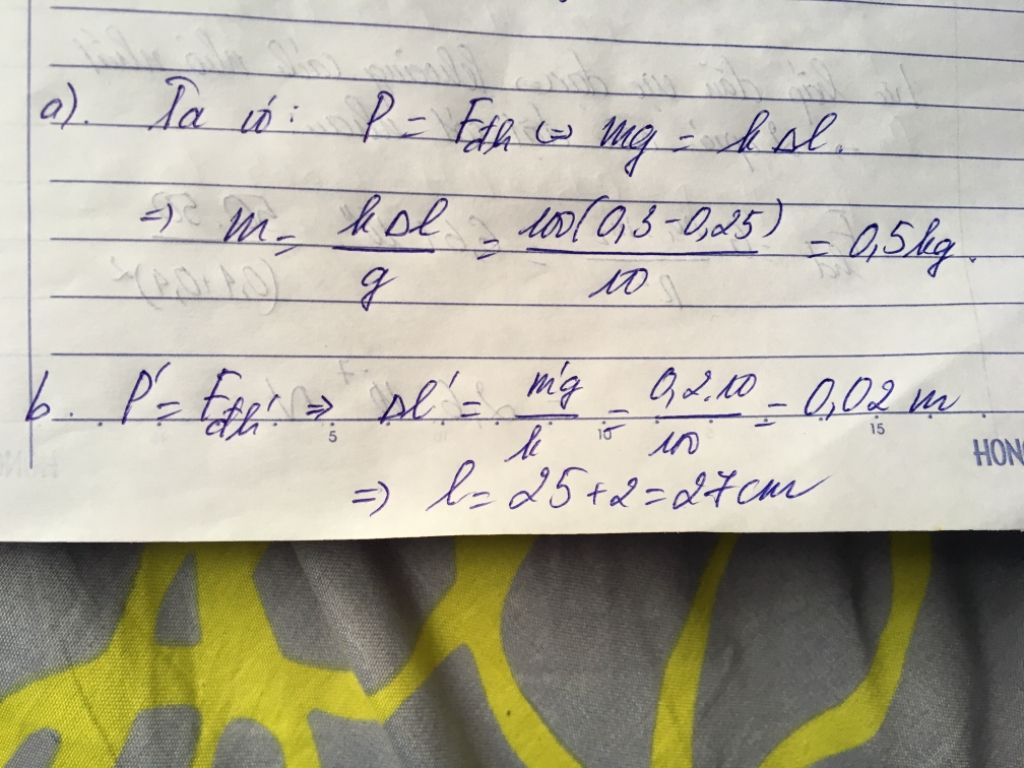 a). Ta có: P = Fđh ⇔ mg = kΔl.
⇒ m = kΔl / g = 100(0,3 - 0,25) / 10 = 0,5 kg.
b. P' = Fđh' ⇒ Δl' = m'g / k = 0,2.10 / 100 = 0,02 m
5 10 15
HONG
⇒ l = 25 + 2 = 27 cm